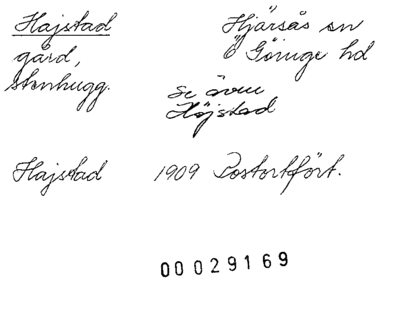 Hajstad
gård,
stenhugg.
Hjärsås sn
Ö Göinge hd
Se även
Höjstad
Hajstad 1909 Postortfört.
00029169